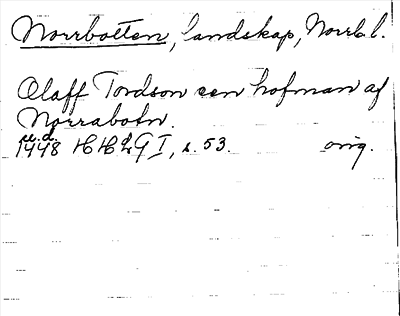 Norrbotten, landskap, Norrb. l.
Olaff Tordson een hofman af
Norrabotn.
u.d.
1448 HH2G I, s. 53. orig.